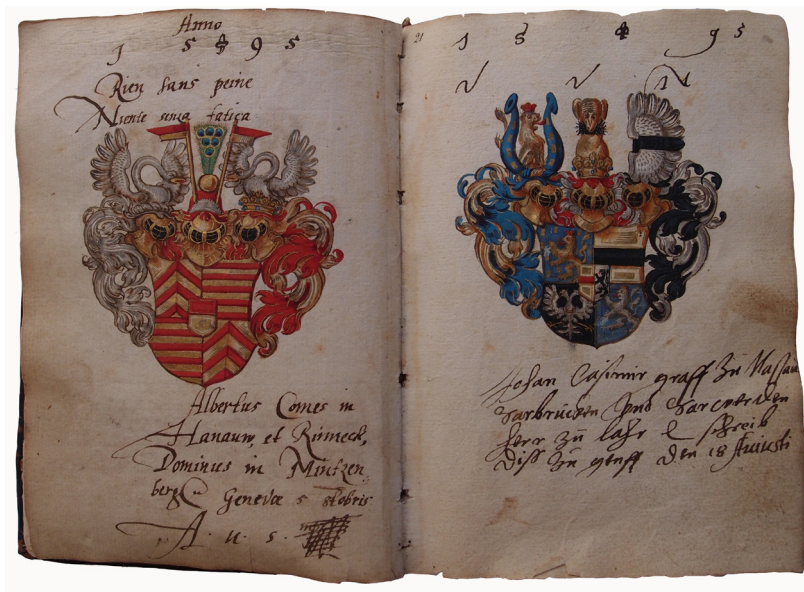 Anno
1 5 9 5
Rien sans peine
Niente senza fatica
Albertus Comes in
Hanauw, et Rinneck,
Dominus in Mintzen
berg Genevæ 5 8bris
A. u. s.
21
1 5 9 5
V V N
Johan Casimir graff zu Nassau
Sarbrücken Vnd Sarwerden
herr zu lahr schreib
diss zu genff den 18 Augusti